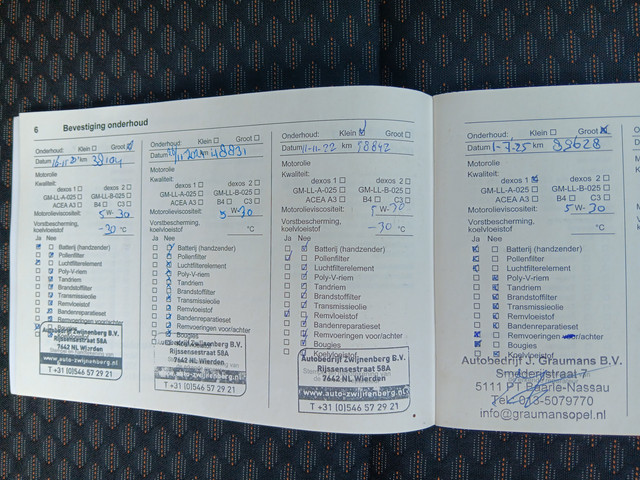 6 Bevestiging onderhoud
Onderhoud: Klein Groot
Datum km
Motorolie
Kwaliteit:
dexos 1 dexos 2
GM-LL-A-025 GM-LL-B-025
ACEA A3 B4 C3
Motorolieviscositeit: 5 W- 30
Vorstbescherming,
koelvloeistof -30 °C
Ja Nee
Batterij (handzender)
Pollenfilter
Luchtfilterelement
Poly-V-riem
Tandriem
Brandstoffilter
Transmissieolie
Remvloeistof
Bandenreparatieset
Remvoeringen voor/achter
Bougies
Autobedrijf Zwijnenberg B.V.
Rijssensestraat 58A
7642 NL Wierden
www.auto-zwijnenberg.nl
T +31 (0)546 57 29 21
Onderhoud: Klein Groot
Datum km 48831
Motorolie
Kwaliteit:
dexos 1 dexos 2
GM-LL-A-025 GM-LL-B-025
ACEA A3 B4 C3
Motorolieviscositeit: 5 W- 30
Vorstbescherming,
koelvloeistof -30 °C
Ja Nee
Batterij (handzender)
Pollenfilter
Luchtfilterelement
Poly-V-riem
Tandriem
Brandstoffilter
Transmissieolie
Remvloeistof
Bandenreparatieset
Remvoeringen voor/achter
Autobedrijf Zwijnenberg B.V.
Rijssensestraat 58A
7642 NL Wierden
www.auto-zwijnenberg.nl
T +31 (0)546 57 29 21
Onderhoud: Klein Groot
Datum 11-11-22 km
Motorolie
Kwaliteit:
dexos 1 dexos 2
GM-LL-A-025 GM-LL-B-025
ACEA A3 B4 C3
Motorolieviscositeit: 5 W- 30
Vorstbescherming,
koelvloeistof -30 °C
Ja Nee
Batterij (handzender)
Pollenfilter
Luchtfilterelement
Poly-V-riem
Tandriem
Brandstoffilter
Transmissieolie
Remvloeistof
Bandenreparatieset
Remvoeringen voor/achter
Bougies
Koelvloeistof
Autobedrijf Zwijnenberg B.V.
Rijssensestraat 58A
7642 NL Wierden
www.auto-zwijnenberg.nl
T +31 (0)546 57 29 21
Onderhoud: Klein Groot
Datum 1-7-25 km 89628
Motorolie
Kwaliteit:
dexos 1 dexos 2
GM-LL-A-025 GM-LL-B-025
ACEA A3 B4 C3
Motorolieviscositeit: 5 W- 30
Vorstbescherming,
koelvloeistof °C
Ja Nee
Batterij (handzender)
Pollenfilter
Luchtfilterelement
Poly-V-riem
Tandriem
Brandstoffilter
Transmissieolie
Remvloeistof
Bandenreparatieset
Remvoeringen
Bougies
Koelvloeistof
Autobedrijf J. Graumans B.V.
Smederijstraat 7
5111 PT Baarle-Nassau
Tel. 013-5079770
info@graumansopel.nl